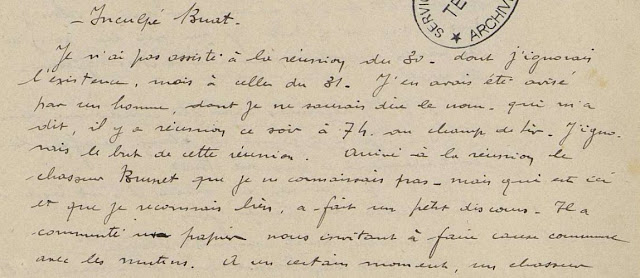 - Inculpé Buat.
SERVIC
TE
ARCHIV
Je n'ai pas assisté à la réunion du 30 - dont j'ignorais
l'existence, mais à celle du 31. J'en avais été avisé
par un homme, dont je ne saurais dire le nom - qui m'a
dit, il y a réunion ce soir à 7h. au champ de tir. J'igno-
rais le but de cette réunion. Arrivé à la réunion le
chasseur Brunet que je ne connaissais pas - mais qui est ici
et que je reconnais bien, a fait un petit discours - Il a
papier nous invitant à faire cause commune
avec les mutins. A un certain moment, un chasseur